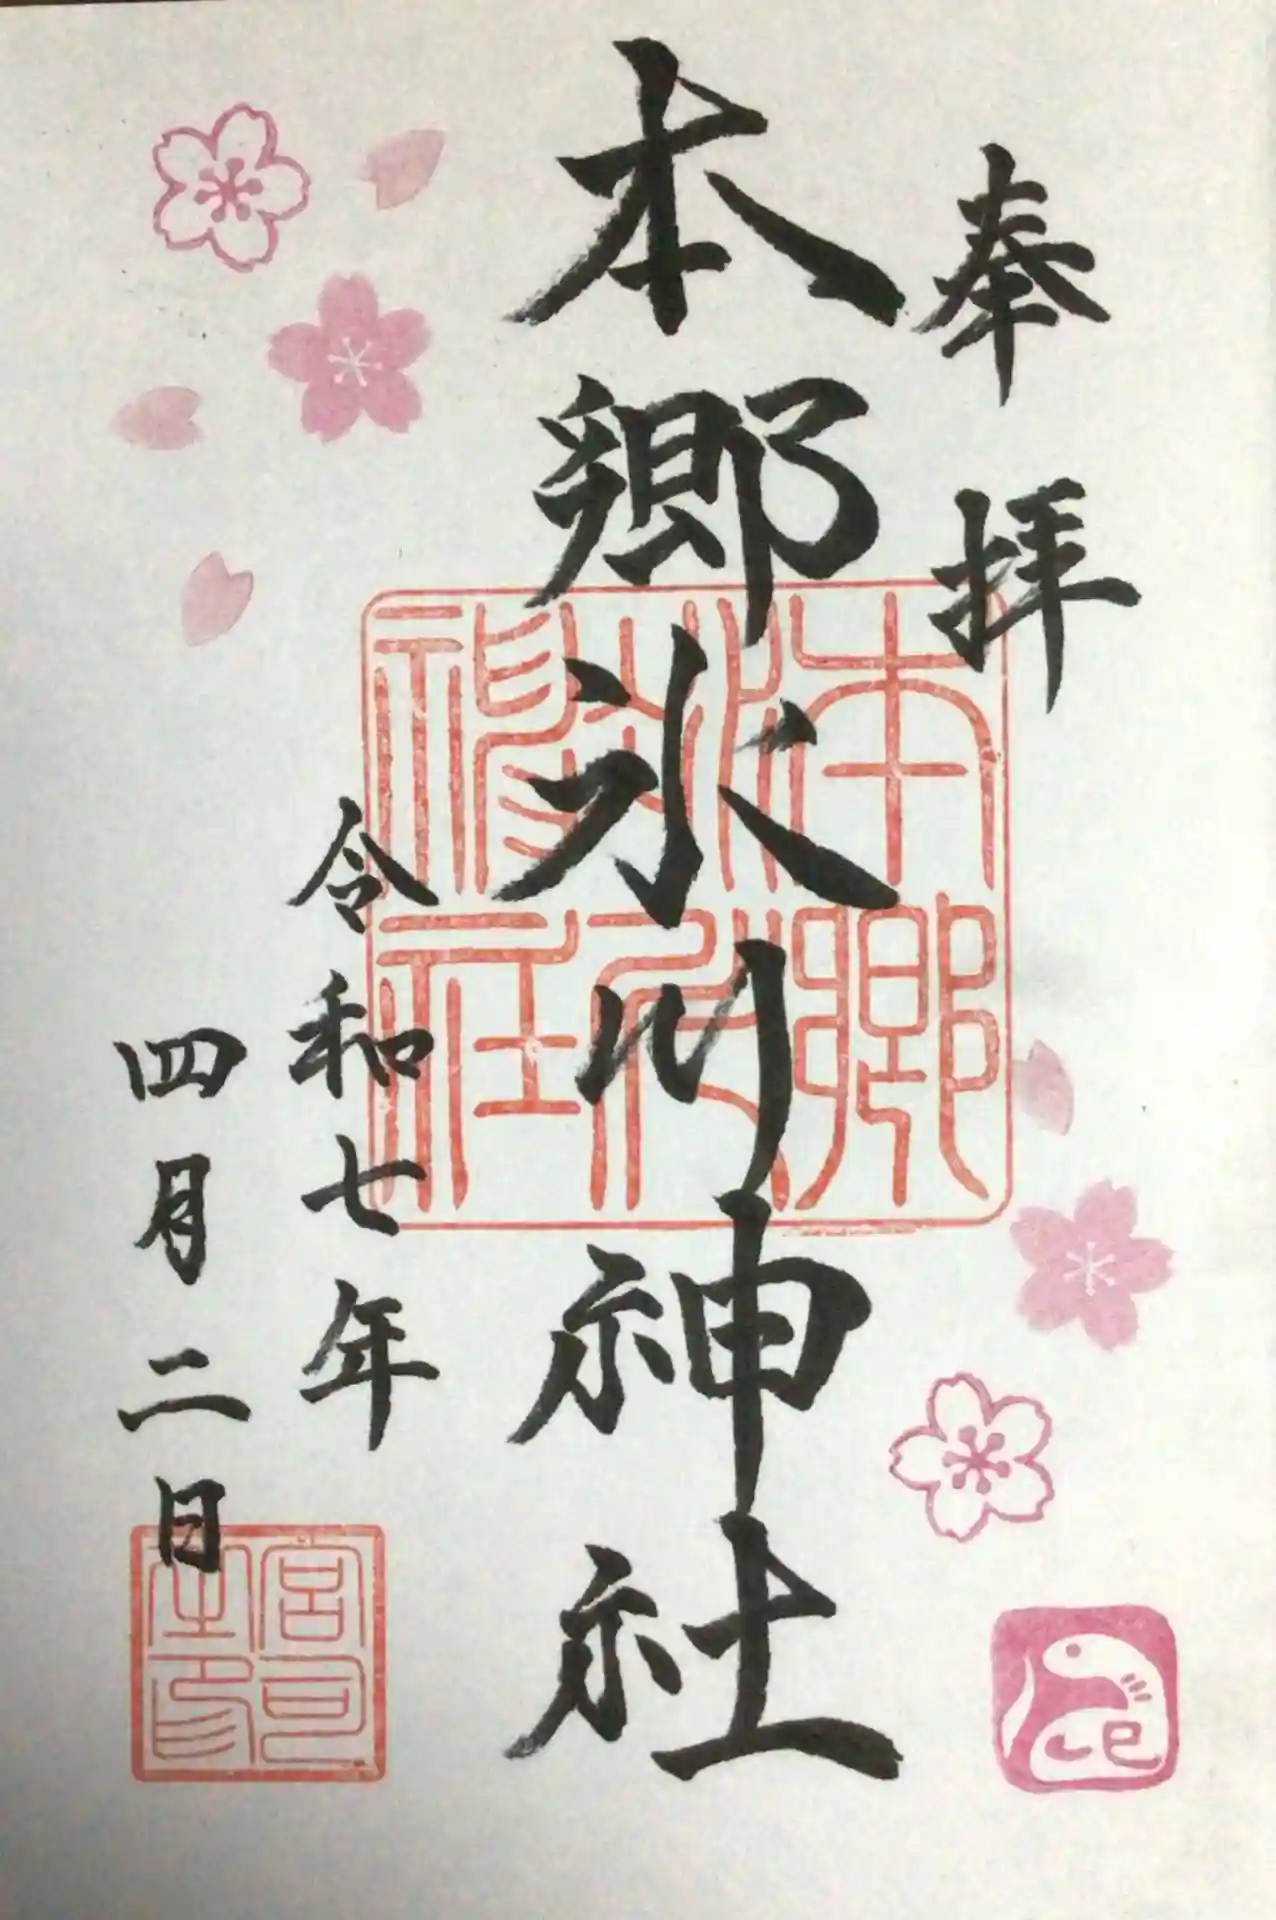 奉拝
本郷氷川神社
令和七年
四月二日
本郷
氷川
神社
宮司
之印
巳